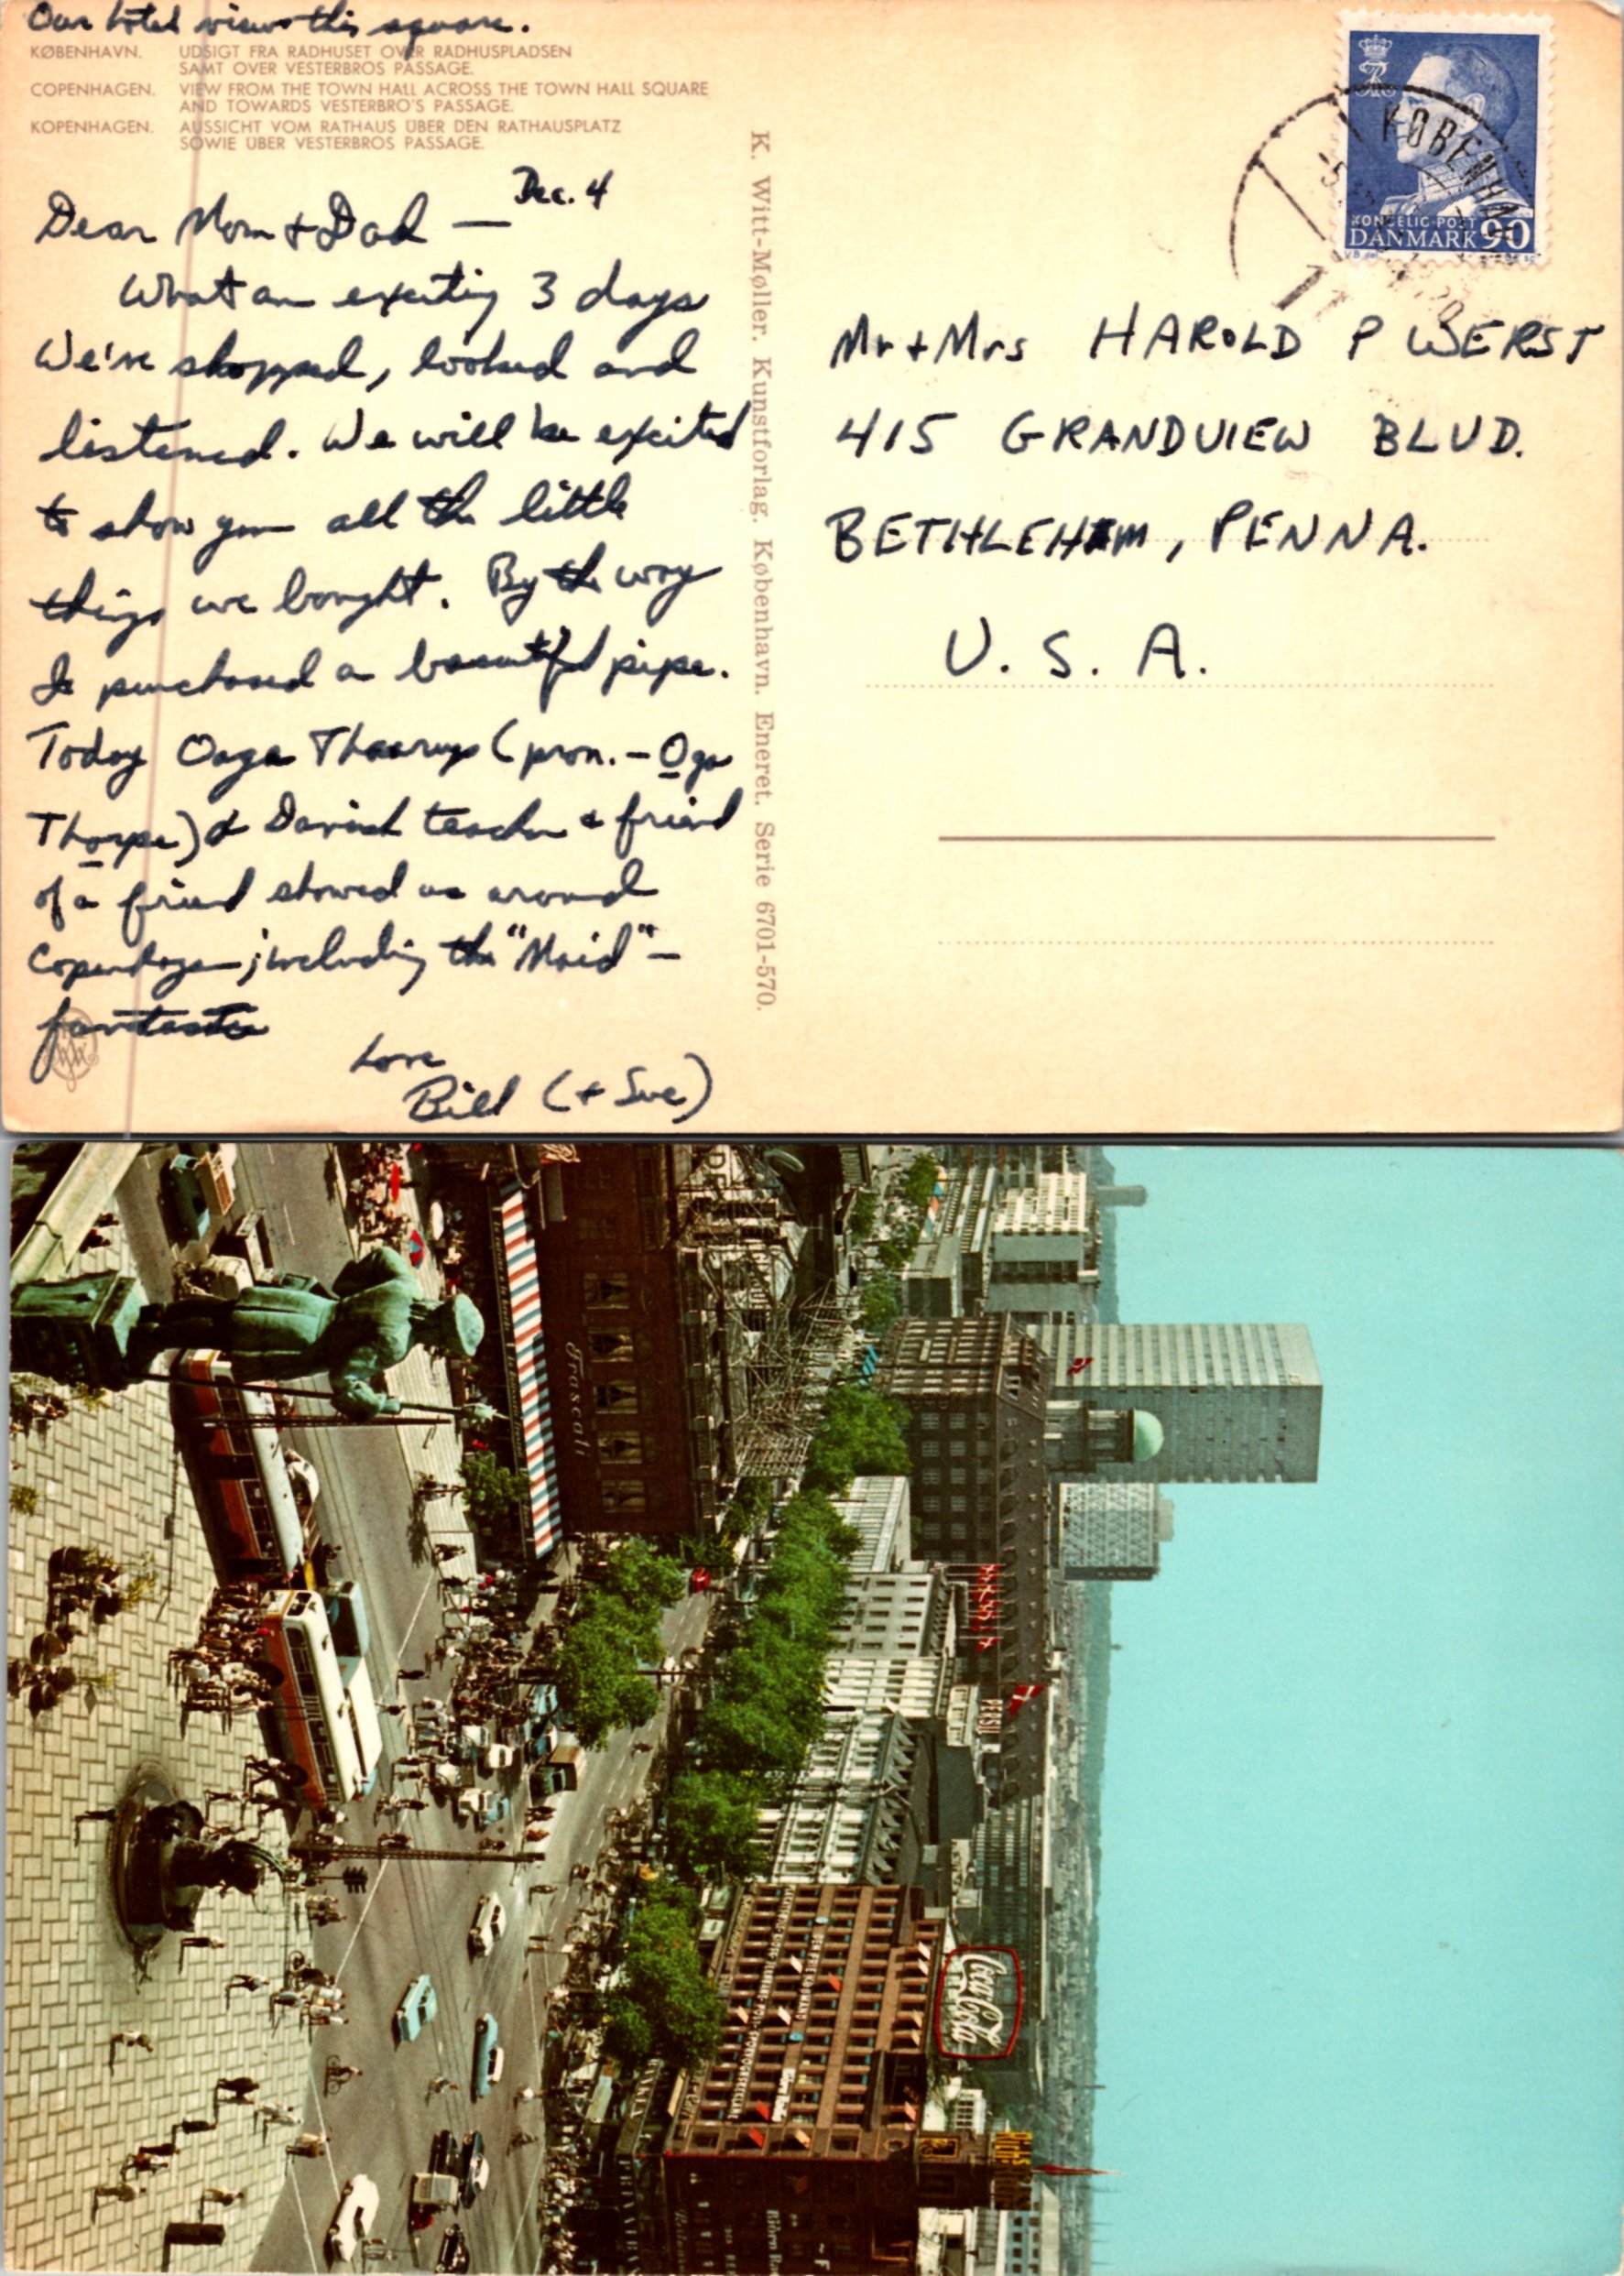 Our hotel views this square.
KØBENHAVN. UDSIGT FRA RADHUSET OVER RADHUSPLADSEN
SAMT OVER VESTERBROS PASSAGE.
COPENHAGEN. VIEW FROM THE TOWN HALL ACROSS THE TOWN HALL SQUARE
AND TOWARDS VESTERBRO'S PASSAGE.
KOPENHAGEN. AUSSICHT VOM RATHAUS ÜBER DEN RATHAUSPLATZ
SOWIE ÜBER VESTERBROS PASSAGE.
Dec. 4
Dear Mom + Dad —
What an exciting 3 days
We've shopped, looked and
listened. We will be excited
to show you all the little
things we bought. By the way
I purchased a beautiful pipe.
Today Oaga Thaarup (pron. – Oga
Thorpe) a Danish teacher & friend
of a friend showed us around
Copenhagen; including the "Maid" –
fantastic
Love
Bill (+ Sue)
K. Witt-Møller. Kunstforlag. København. Eneret. Serie 6701-570.
KØBENHAVN
KONGELIG POST
DANMARK 90
Mr + Mrs HAROLD P WERST
415 GRANDVIEW BLVD.
BETHLEHEM, PENNA.
U. S. A.
Frascati
PERSIL
Coca-Cola